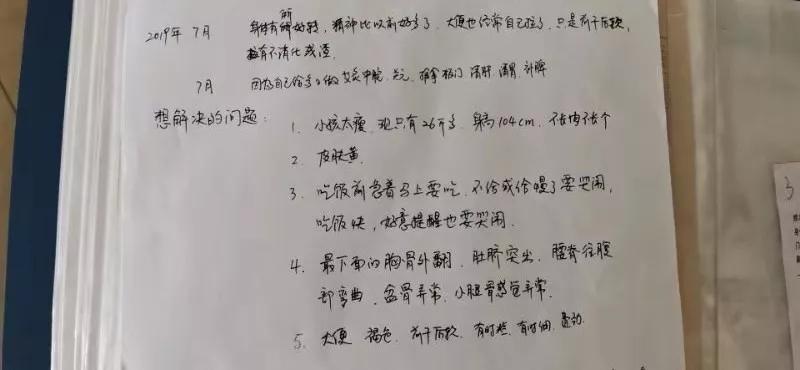 2019年 7月 身体有所好转,精神比以前好多了,大便也经常自己拉了,只是前干后软,
还有不消化残渣.
7月 因为自己给多多做艾灸中脘、关元,推拿板门 清肝 清胃 补脾
想解决的问题:
1. 小孩太瘦.现只有26斤多.身高104cm.不长肉不长个
2. 皮肤黄.
3. 吃饭前急着马上要吃.不给或给慢了要哭闹,
吃饭快,好意提醒也要哭闹.
4. 最下面的胸骨外翻.肚脐突出、腰脊往腹
部弯曲.盆骨异常.小腿骨感觉异常.
5. 大便 褐色.前干后软.有时粗.有时细.
3